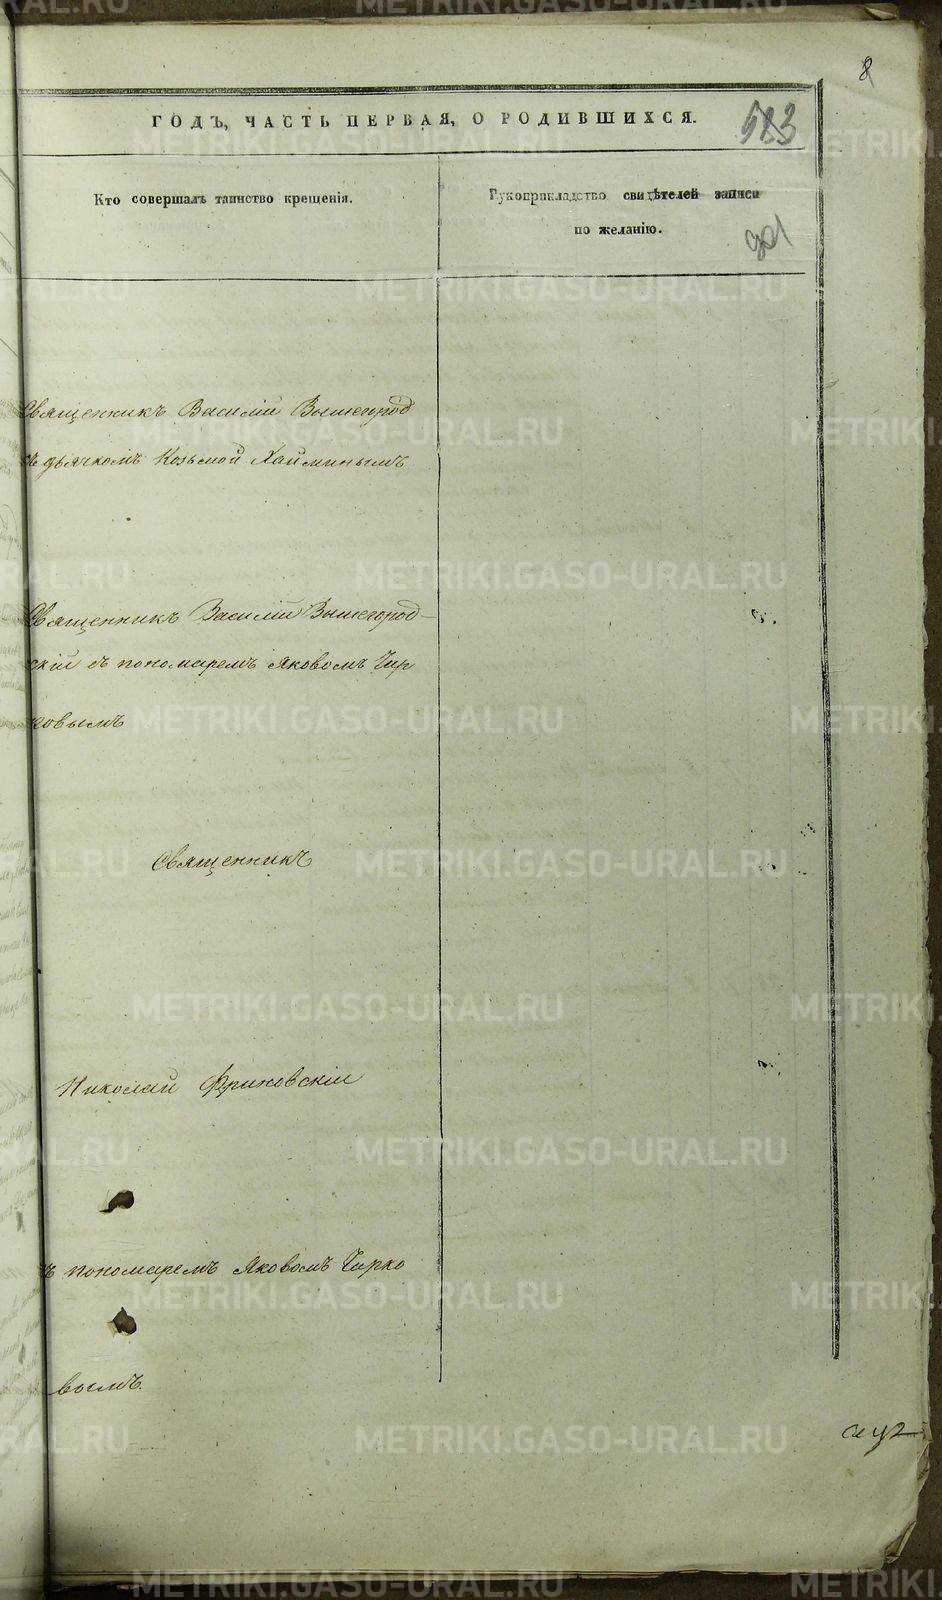 8
ГОДЪ, ЧАСТЬ ПЕРВАЯ, О РОДИВШИХСЯ.
583
Кто совершалъ таинство крещенія.
Рукоприкладство свидѣтелей записи
по желанію.
Священникъ Василій Вышегород
съ дьячкомъ Козьмой Хайминымъ
Священникъ Василій Вышегород-
скій съ пономаремъ Яковомъ Чир
ковымъ
Священникъ
Николай
съ пономаремъ Яковомъ Чирко
вымъ.
METRIKI.GASO-URAL.RU